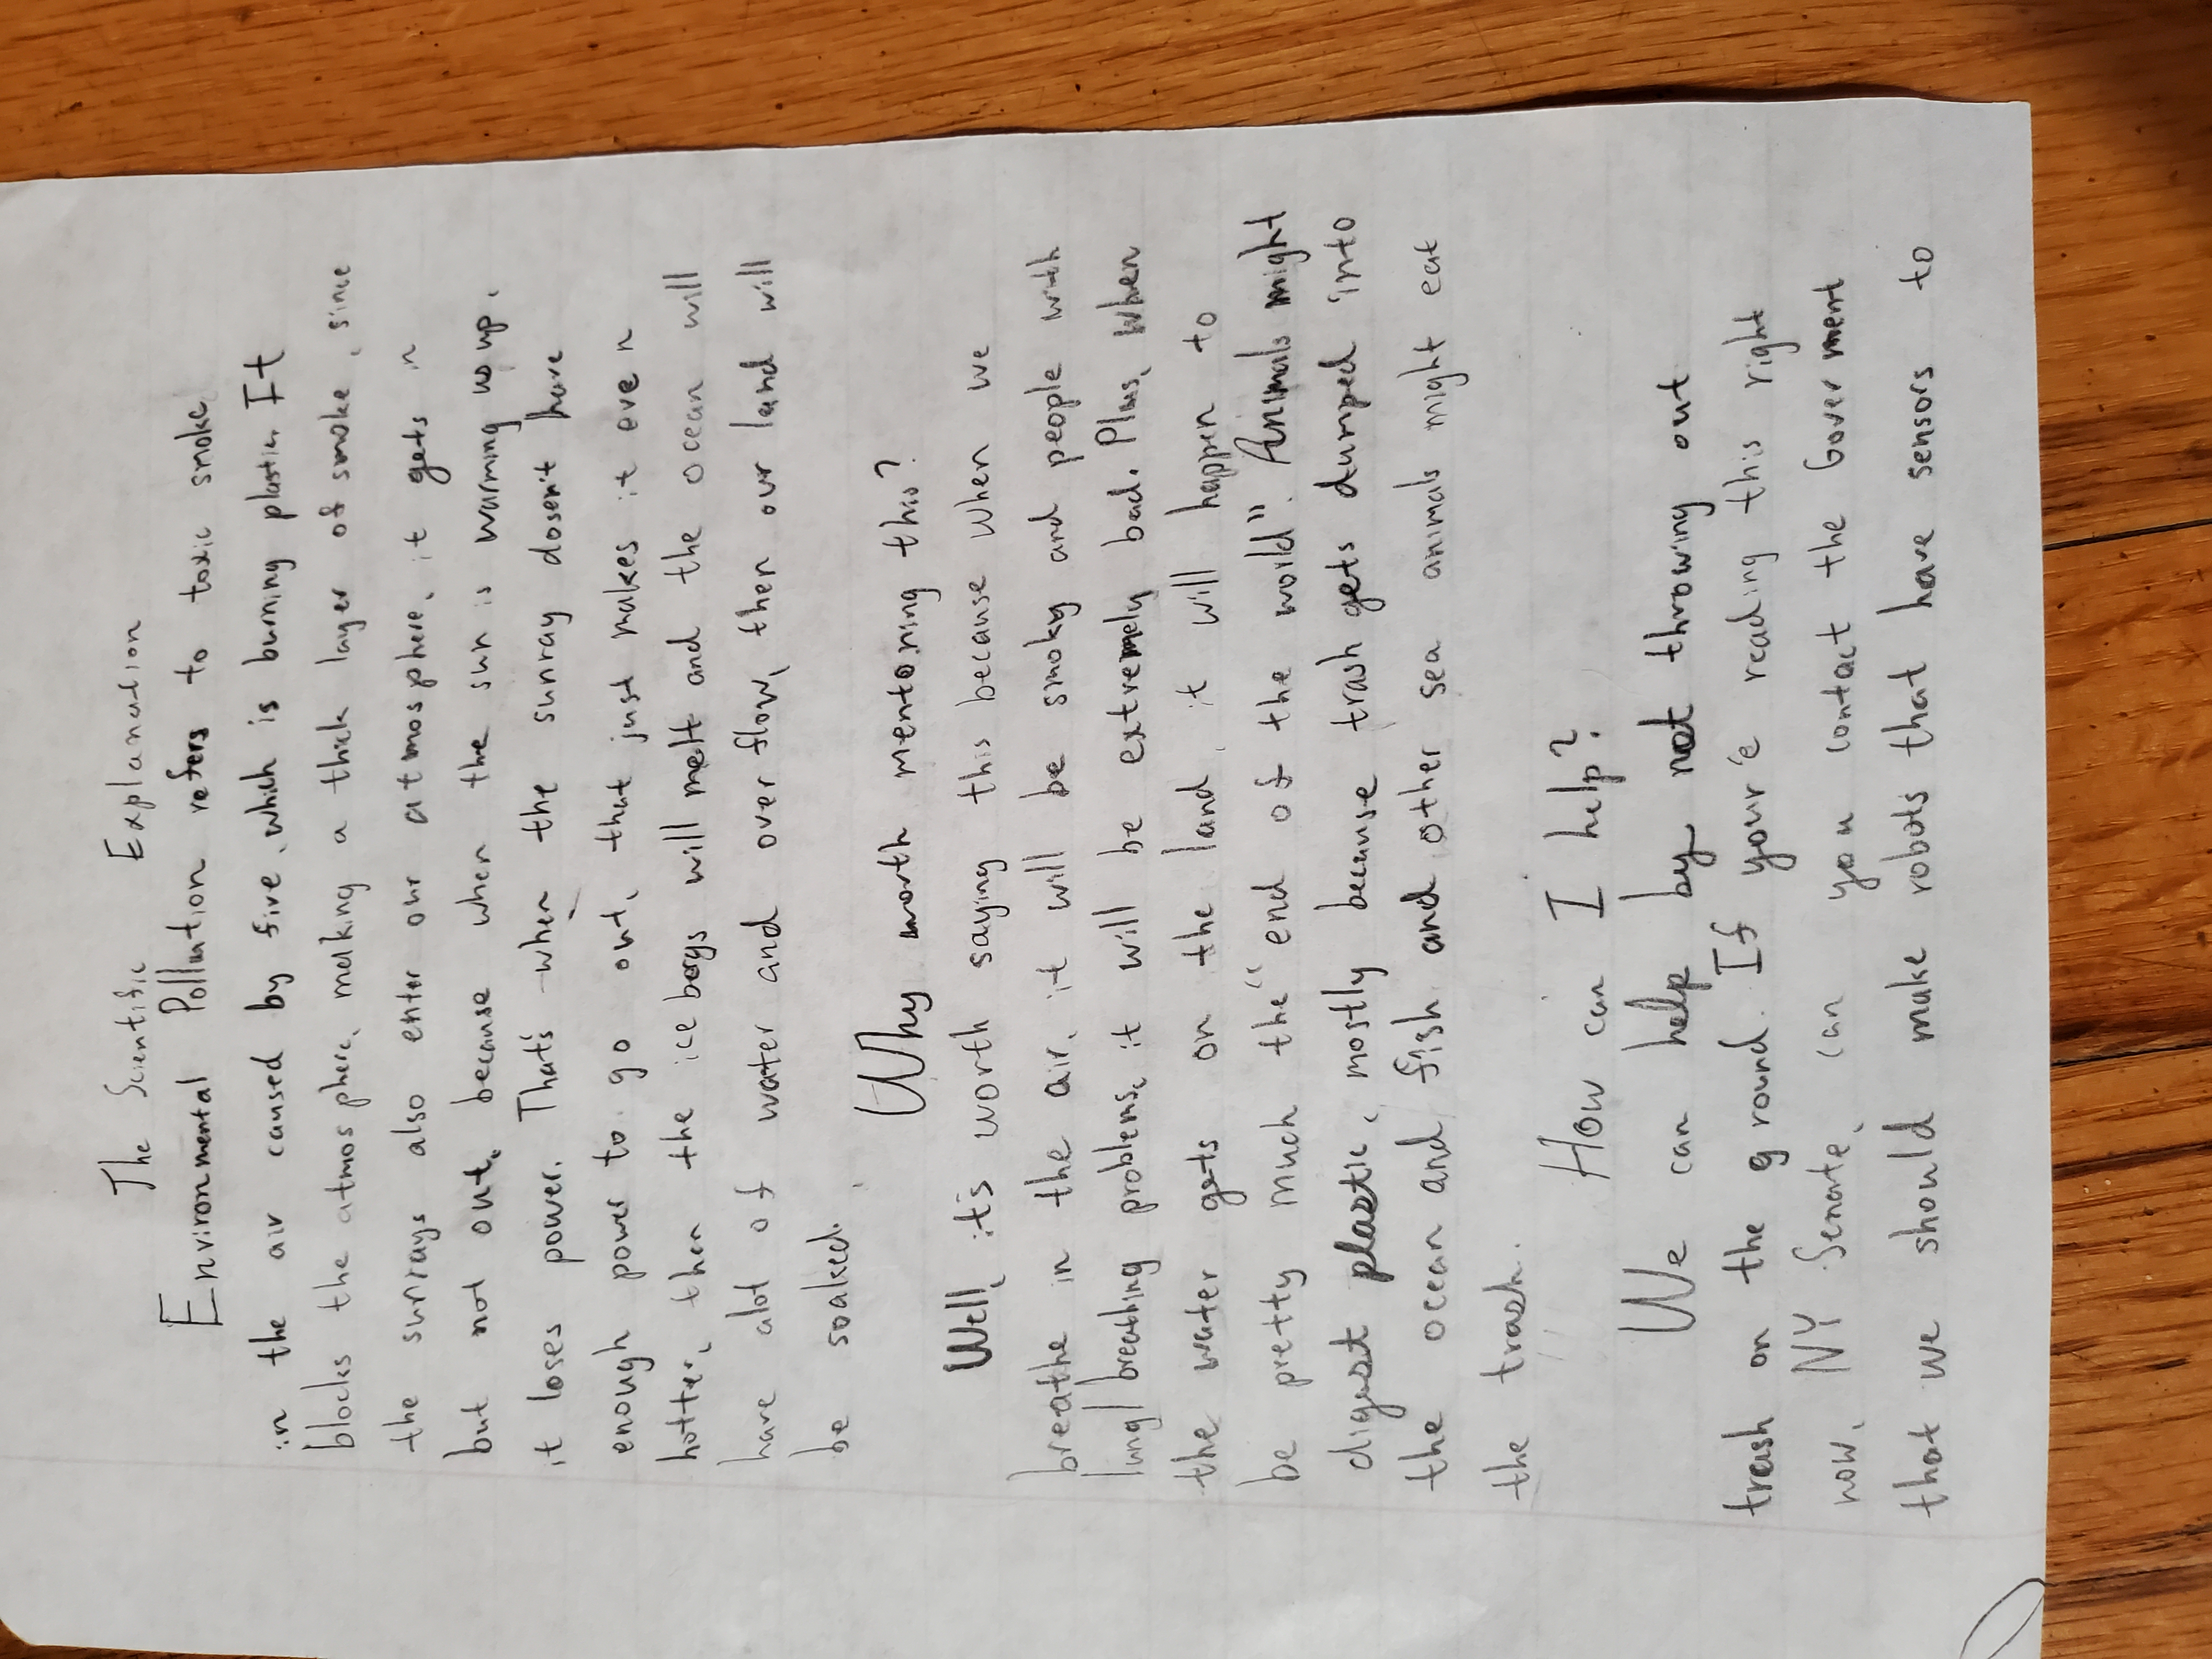 The Scientific Explanation
Environmental Pollution refers to toxic smoke
in the air caused by fire, which is burning plastic. It
blocks the atmosphere, making a thick layer of smoke, since
the sunrays also enter our atmosphere, it gets in
but not out, because when the sun is warming us up,
it loses power. That's when the sunray dosen't have
enough power to go out, that just makes it even
hotter, then the icebergs will melt and the ocean will
have alot of water and overflow, then our land will
be soaked.
Why worth mentoning this?
Well, it's worth saying this because when we
breathe in the air, it will be smoky and people with
lung/breathing problems, it will be extremely bad. Plus, when
the water gets on the land, it will happen to
be pretty much the "end of the world". Animals might
digest plastic, mostly because trash gets dumped into
the ocean and fish and other sea animals might eat
the trash.
How can I help?
We can help by not throwing out
trash on the ground. If your'e reading this right
now, NY Senate, can you contact the Goverment
that we should make robots that have sensors to